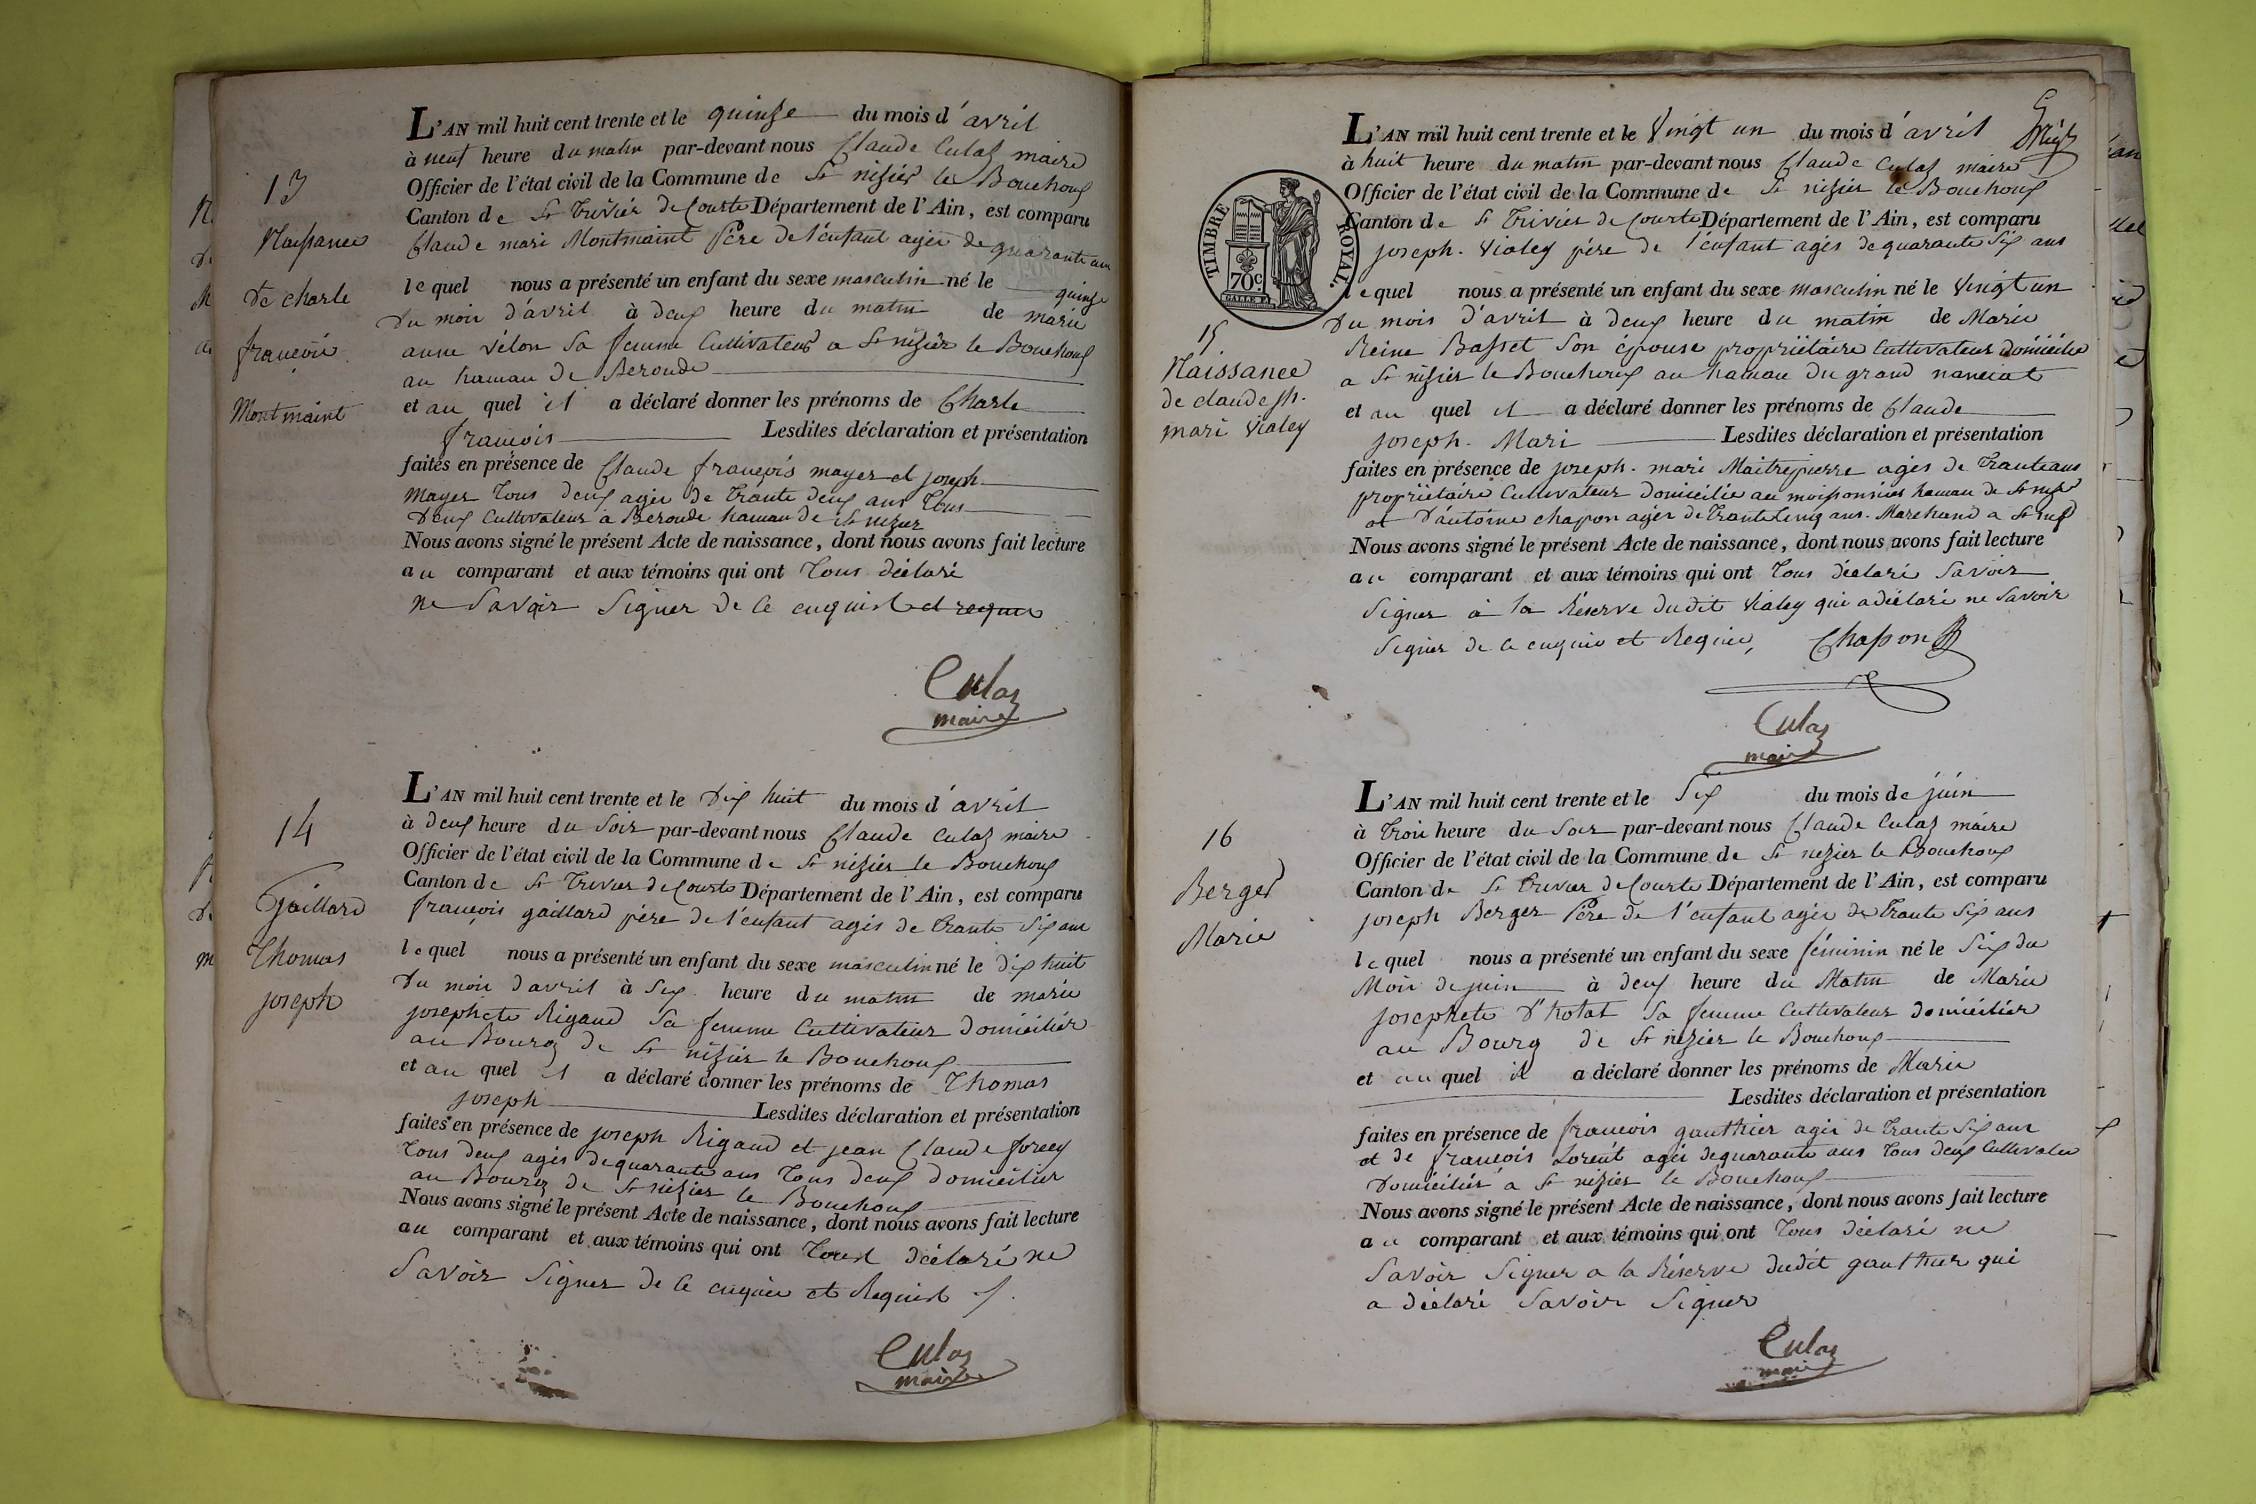 13
Naissance
De charle
françois
Montmaint
L'AN mil huit cent trente et le quinze du mois d'avril
à neuf heure du matin par-devant nous Claude Culas maire
Officier de l'état civil de la Commune de St nizier le Bouchoux
Canton de St Trivier de Courte Département de l'Ain, est comparu
Claude mari Montmaint père de l'enfant agés de quarante ans
lequel nous a présenté un enfant du sexe masculin né le quinze
Du mois d'avril à deux heure du matin de marie
anne vélon Sa femme Cultivateurs a St nizier le Bouchoux
au hamau de Beronde
et au quel il a déclaré donner les prénoms de Charle
françois Lesdites déclaration et présentation
faites en présence de Claude françois mayer et joseph
mayer Tous deux agés de trante deux ans Tous
Deux Cultivateur a Beronde hamau de St nizier
Nous avons signé le présent Acte de naissance, dont nous avons fait lecture
au comparant et aux témoins qui ont Tous déclaré
ne Savoir Signer de ce enquis et requis
Culas
maire
14
Gaillard
Thomas
joseph
L'AN mil huit cent trente et le Dix huit du mois d'avril
à deux heure du Soir par-devant nous Claude Culas maire
Officier de l'état civil de la Commune de St nizier le Bouchoux
Canton de St Trivier de Courte Département de l'Ain, est comparu
françois gaillard père de l'enfant agés de trante Six ans
lequel nous a présenté un enfant du sexe masculin né le dix huit
Du mois d'avril à Six heure du matin de marie
josephete Rigaud Sa femme Cultivateur domicilier
au Bourg de St nizier le Bouchoux
et au quel il a déclaré donner les prénoms de Thomas
joseph Lesdites déclaration et présentation
faites en présence de joseph Rigaud et jean Claude
Tous deux agés de quarante ans Tous deux domicilier
au Bourg de St nizier le Bouchoux
Nous avons signé le présent Acte de naissance, dont nous avons fait lecture
au comparant et aux témoins qui ont Tous déclaré ne
Savoir Signer de ce enquis et Requis
Culas
maire
TIMBRE ROYAL
70c
15
Naissance
de claude jh.
mari Vialey
L'AN mil huit cent trente et le Vingt un du mois d'avril
à huit heure du matin par-devant nous Claude Culas maire
Officier de l'état civil de la Commune de St nizier le Bouchoux
Canton de St Trivier de Courte Département de l'Ain, est comparu
joseph. Vialey père de l'enfant agés de quarante Six ans
lequel nous a présenté un enfant du sexe masculin né le Vingt un
Du mois d'avril à deux heure du matin de Marie
Reine Basset Son épouse propriétaire Cultivateur domicilie
a St nizier le Bouchoux au hamau du grand nanciat
et au quel il a déclaré donner les prénoms de Claude
joseph. Mari Lesdites déclaration et présentation
faites en présence de joseph. mari Maitrepierre agés de Trante ans
propriétaire Cultivateur domicilie au moissonnier hamau de St nizier
et D'antoine chapon agés de Trante Cinq ans. Marchand a St
Nous avons signé le présent Acte de naissance, dont nous avons fait lecture
au comparant et aux témoins qui ont Tous déclaré Savoir
Signer à la Réserve dudit Vialey qui a déclaré ne Savoir
Signer de ce enquis et Requis, Chapon
Culas
maire
16
Berger
Marie
L'AN mil huit cent trente et le Six du mois de juin
à Trois heure du Soir par-devant nous Claude Culas maire
Officier de l'état civil de la Commune de St nizier le Bouchoux
Canton de St Trivier de Courte Département de l'Ain, est comparu
joseph Berger père de l'enfant agés de Trante Six ans
lequel nous a présenté un enfant du sexe féminin né le Six du
Mois de juin à deux heure du Matin de Marie
josephete D'hotat Sa femme Cultivateur domicilier
au Bourg de St nizier le Bouchoux
et au quel il a déclaré donner les prénoms de Marie
Lesdites déclaration et présentation
faites en présence de françois gauthier agés de Trante Six ans
et de françois Lorént agés de quarante ans Tous deux Cultivateur
Domiciliés a St nizier le Bouchoux
Nous avons signé le présent Acte de naissance, dont nous avons fait lecture
au comparant et aux témoins qui ont Tous déclaré ne
Savoir Signer a la Réserve dudit gauthier qui
a déclaré Savoir Signer
Culas
maire